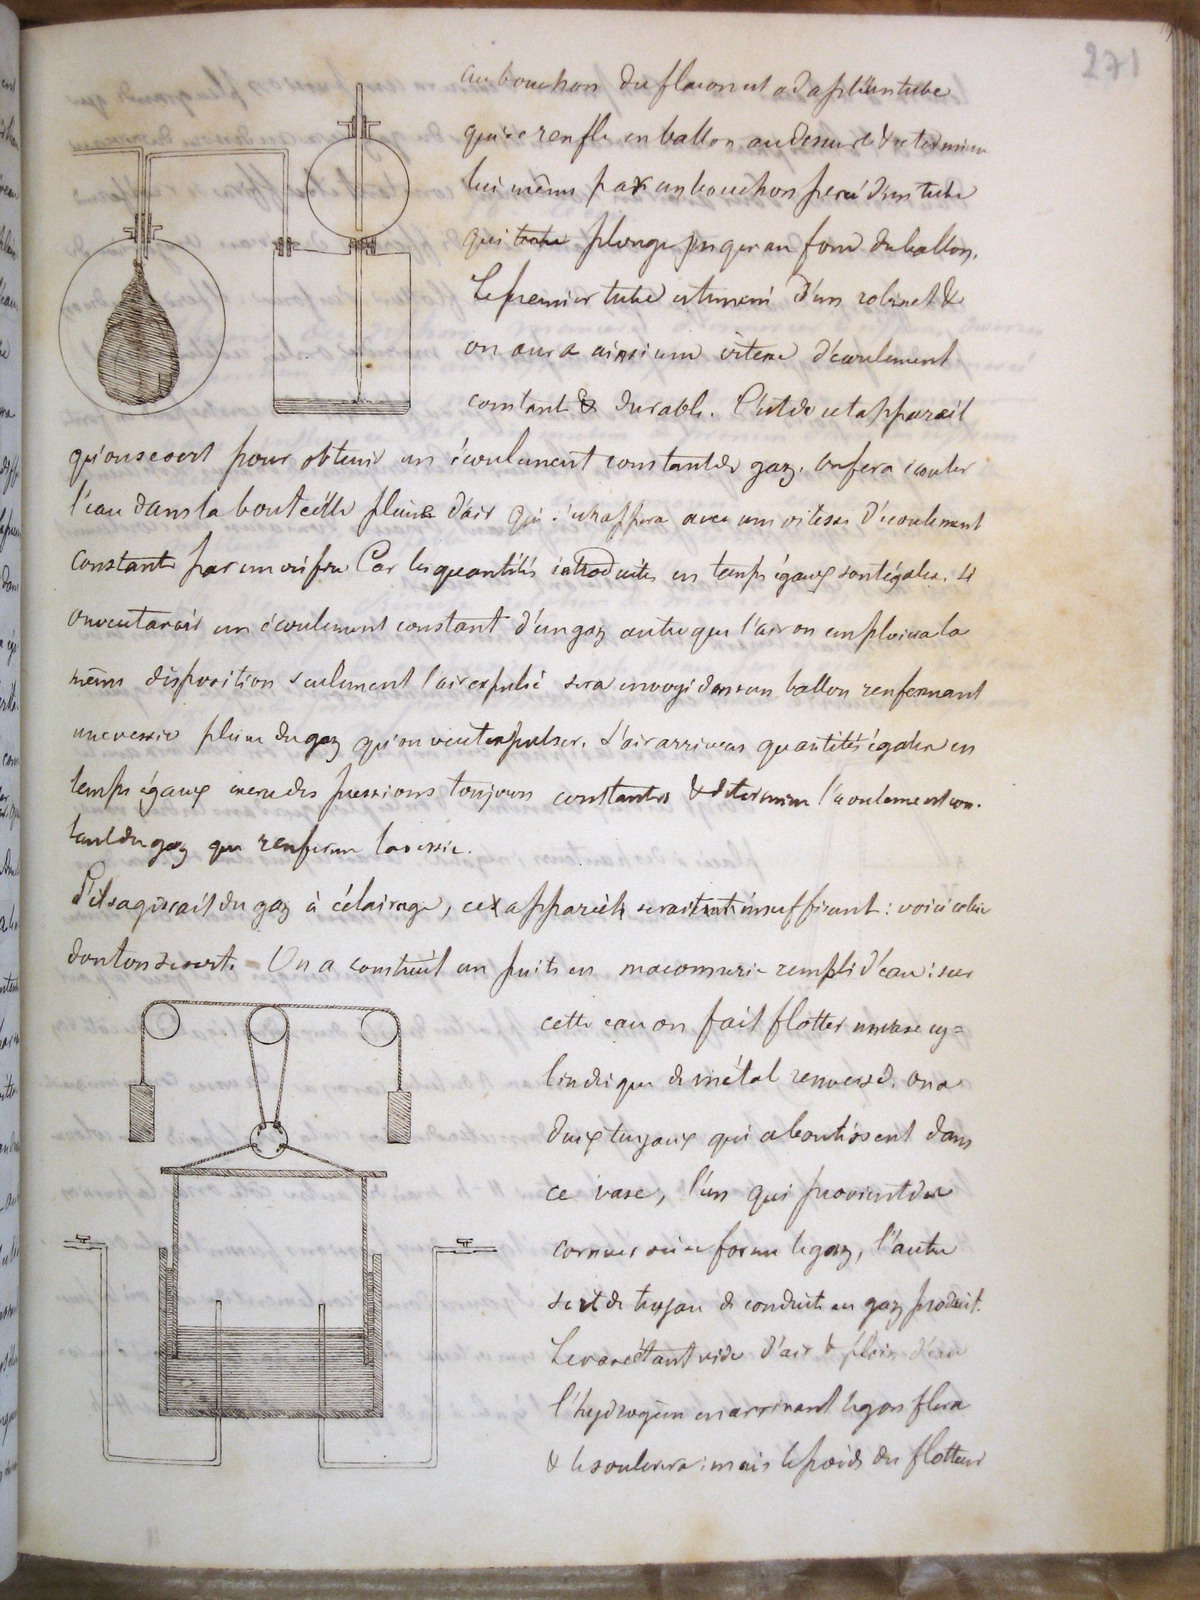 271
au bouchon du flacon est adapté un tube
qui se renfle en ballon au dessus de & se termine
lui même par un bouchon percé d'un tube
qui plonge jusqu'au fond du ballon.
Le premier tube est muni d'un robinet &
on aura ainsi une vitesse d'écoulement
constant & durable. C'est de cet appareil
qu'on se sert pour obtenir un écoulement constant de gaz. On fera couler
l'eau dans la bouteille pleine d'air qui s'échappera avec une vitesse d'écoulement
constante par un orifice Car les quantités introduites en temps égaux sont égales. Si
on veut avoir un écoulement constant d'un gaz autre que l'air on emploiera la
même disposition seulement l'air expulsé sera envoyé dans un ballon renfermant
une vessie pleine du gaz qu'on veut expulser. L'air arrive en quantités égales en
temps égaux exerce des pressions toujours constantes & détermine l'écoulement cons-
tant du gaz que renferme la vessie.
S'il s'agissait du gaz à l'éclairage, cet appareil serait insuffisant : voici celui
dont on se sert. — On a construit un puits en maçonnerie rempli d'eau : sur
cette eau on fait flotter un vase cy=
lindrique de métal renversé. On a
deux tuyaux qui aboutissent dans
ce vase, l'un qui provient des
cornues où se forme le gaz, l'autre
sert de tuyau de conduite au gaz produit.
Le vase étant vide d'air & plein d'eau
l'hydrogène en arrivant le gonflera
& le soulevera : mais le poids du flotteur